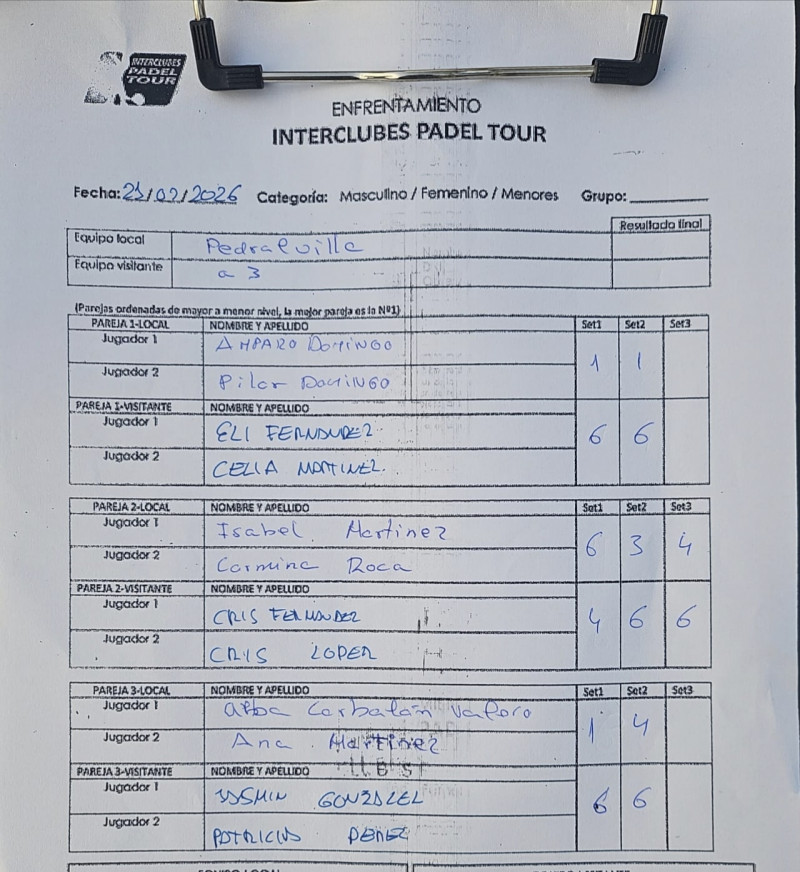 INTERCLUBES
PADEL
TOUR
ENFRENTAMIENTO
INTERCLUBES PADEL TOUR
Fecha: 21/02/2026 Categoría: Masculino / Femenino / Menores Grupo:
Resultado final
Equipo local Pedralvilla
Equipo visitante a 3
(Parejas ordenadas de mayor a menor nivel, la mejor pareja es la Nº1)
PAREJA 1-LOCAL NOMBRE Y APELLIDO Set1 Set2 Set3
Jugador 1 AMPARO DOMINGO
1 1
Jugador 2 Pilar DOMINGO
PAREJA 1-VISITANTE NOMBRE Y APELLIDO
Jugador 1 ELI FERNANDEZ
6 6
Jugador 2 CELIA MARTINEZ.
PAREJA 2-LOCAL NOMBRE Y APELLIDO Set1 Set2 Set3
Jugador 1 Isabel Martinez
6 3 4
Jugador 2 Carmina Roca
PAREJA 2-VISITANTE NOMBRE Y APELLIDO
Jugador 1 CRIS FERNANDEZ
4 6 6
Jugador 2 CRIS LOPEZ
PAREJA 3-LOCAL NOMBRE Y APELLIDO Set1 Set2 Set3
Jugador 1 Alba Corbalán Valero
1 4
Jugador 2 Ana Martinez
PAREJA 3-VISITANTE NOMBRE Y APELLIDO
Jugador 1 JASMIN GONZALEZ
6 6
Jugador 2 PATRICIA PEREZ